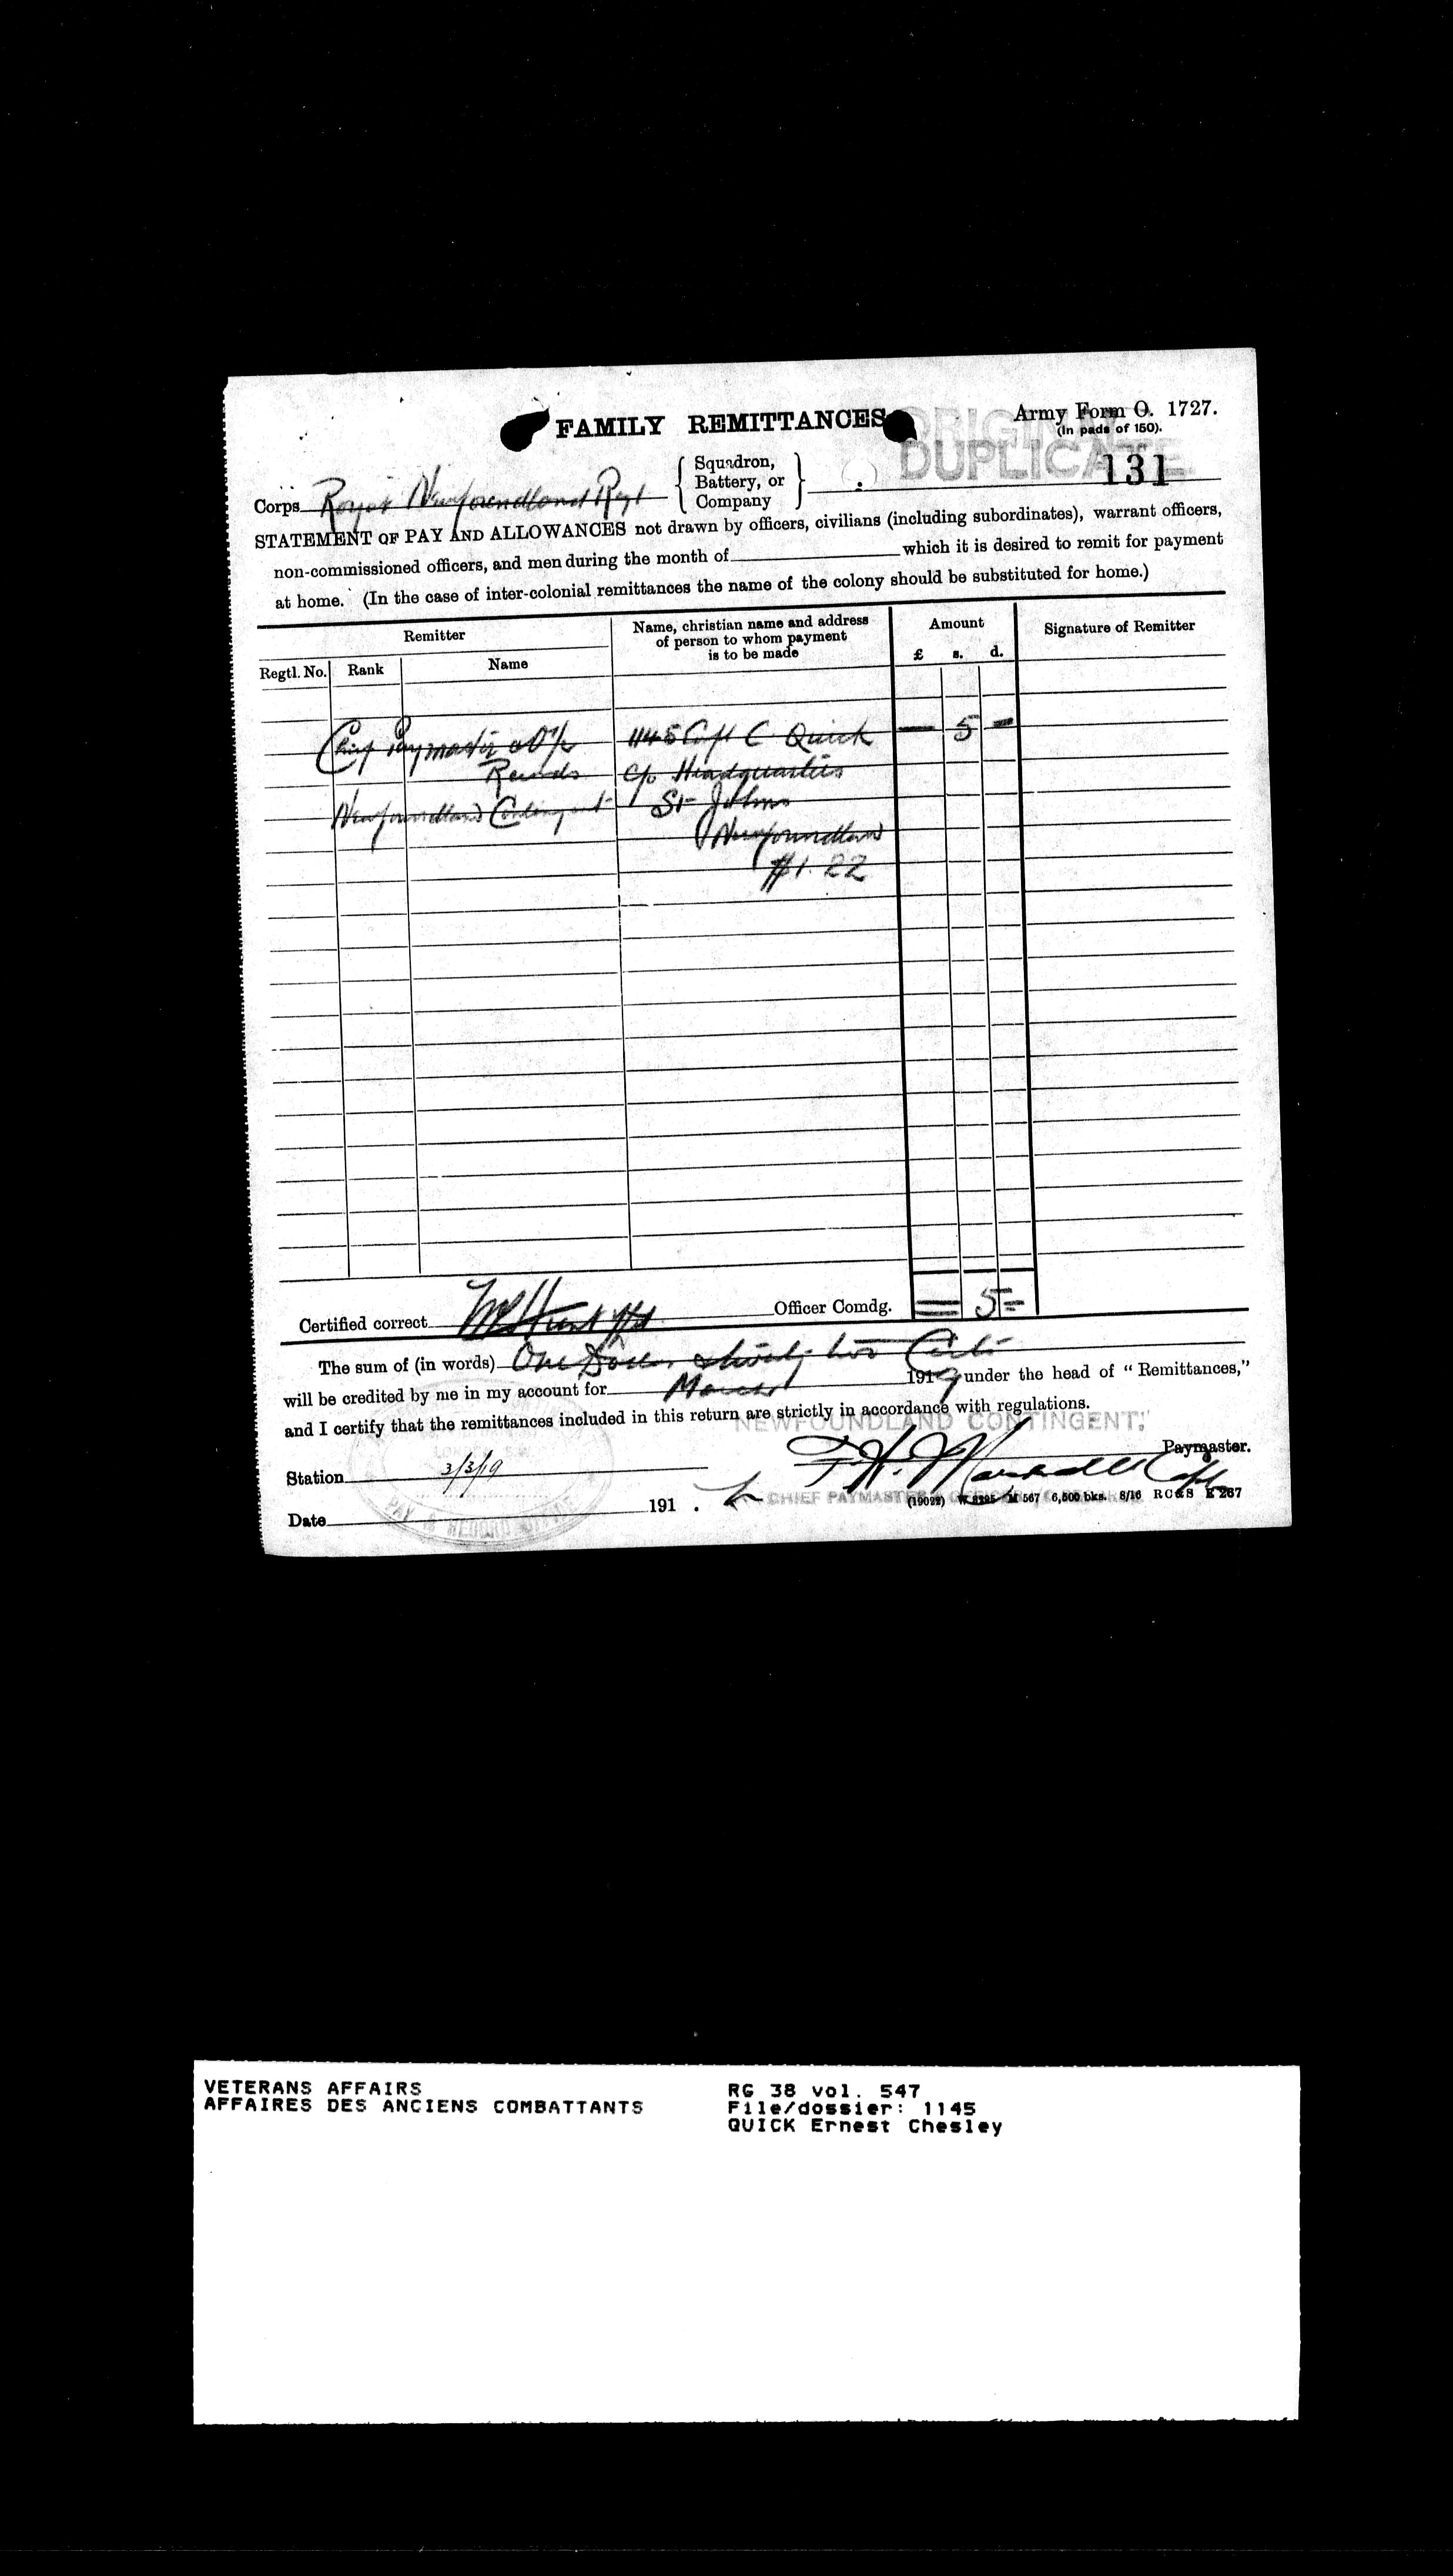 FAMILY REMITTANCES
ORIGINAL
DUPLICATE
Army Form O. 1727.
(In pads of 150).
131
Corps Royal Newfoundland Regt
Squadron,
Battery, or
Company
STATEMENT OF PAY AND ALLOWANCES not drawn by officers, civilians (including subordinates), warrant officers,
non-commissioned officers, and men during the month of which it is desired to remit for payment
at home. (In the case of inter-colonial remittances the name of the colony should be substituted for home.)
Remitter
Name, christian name and address
of person to whom payment
is to be made
Amount
Signature of Remitter
Regtl. No. Rank Name
£ s. d.
Chief Paymaster 1145 C Quick — 5 —
Records c/o Headquarters
Newfoundland Contingent St Johns
Newfoundland
$1.22
Certified correct Officer Comdg. = 5 =
The sum of (in words) One Dollar & twenty two Cents
will be credited by me in my account for March 1919 under the head of “ Remittances,”
and I certify that the remittances included in this return are strictly in accordance with regulations.
NEWFOUNDLAND CONTINGENT,
Paymaster.
Station 3/3/19
CHIEF PAYMASTER
(19022) W 2295—M 567 6,500 bks. 8/16 R C & S E 267
Date 191 .
PAY & RECORD OFFICE
VETERANS AFFAIRS
AFFAIRES DES ANCIENS COMBATTANTS
RG 38 vol. 547
File/dossier: 1145
QUICK Ernest Chesley